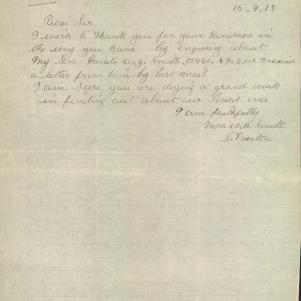 15.9.17
Dear Sir
I wish to thank you for your kindness in
the way you have by enquiring about
My Son Private W.G. Smith, I received
a letter from him by last mail
I am sure you are doing a grand work
in finding out about our loved ones
I am faithfully
Mrs Smith